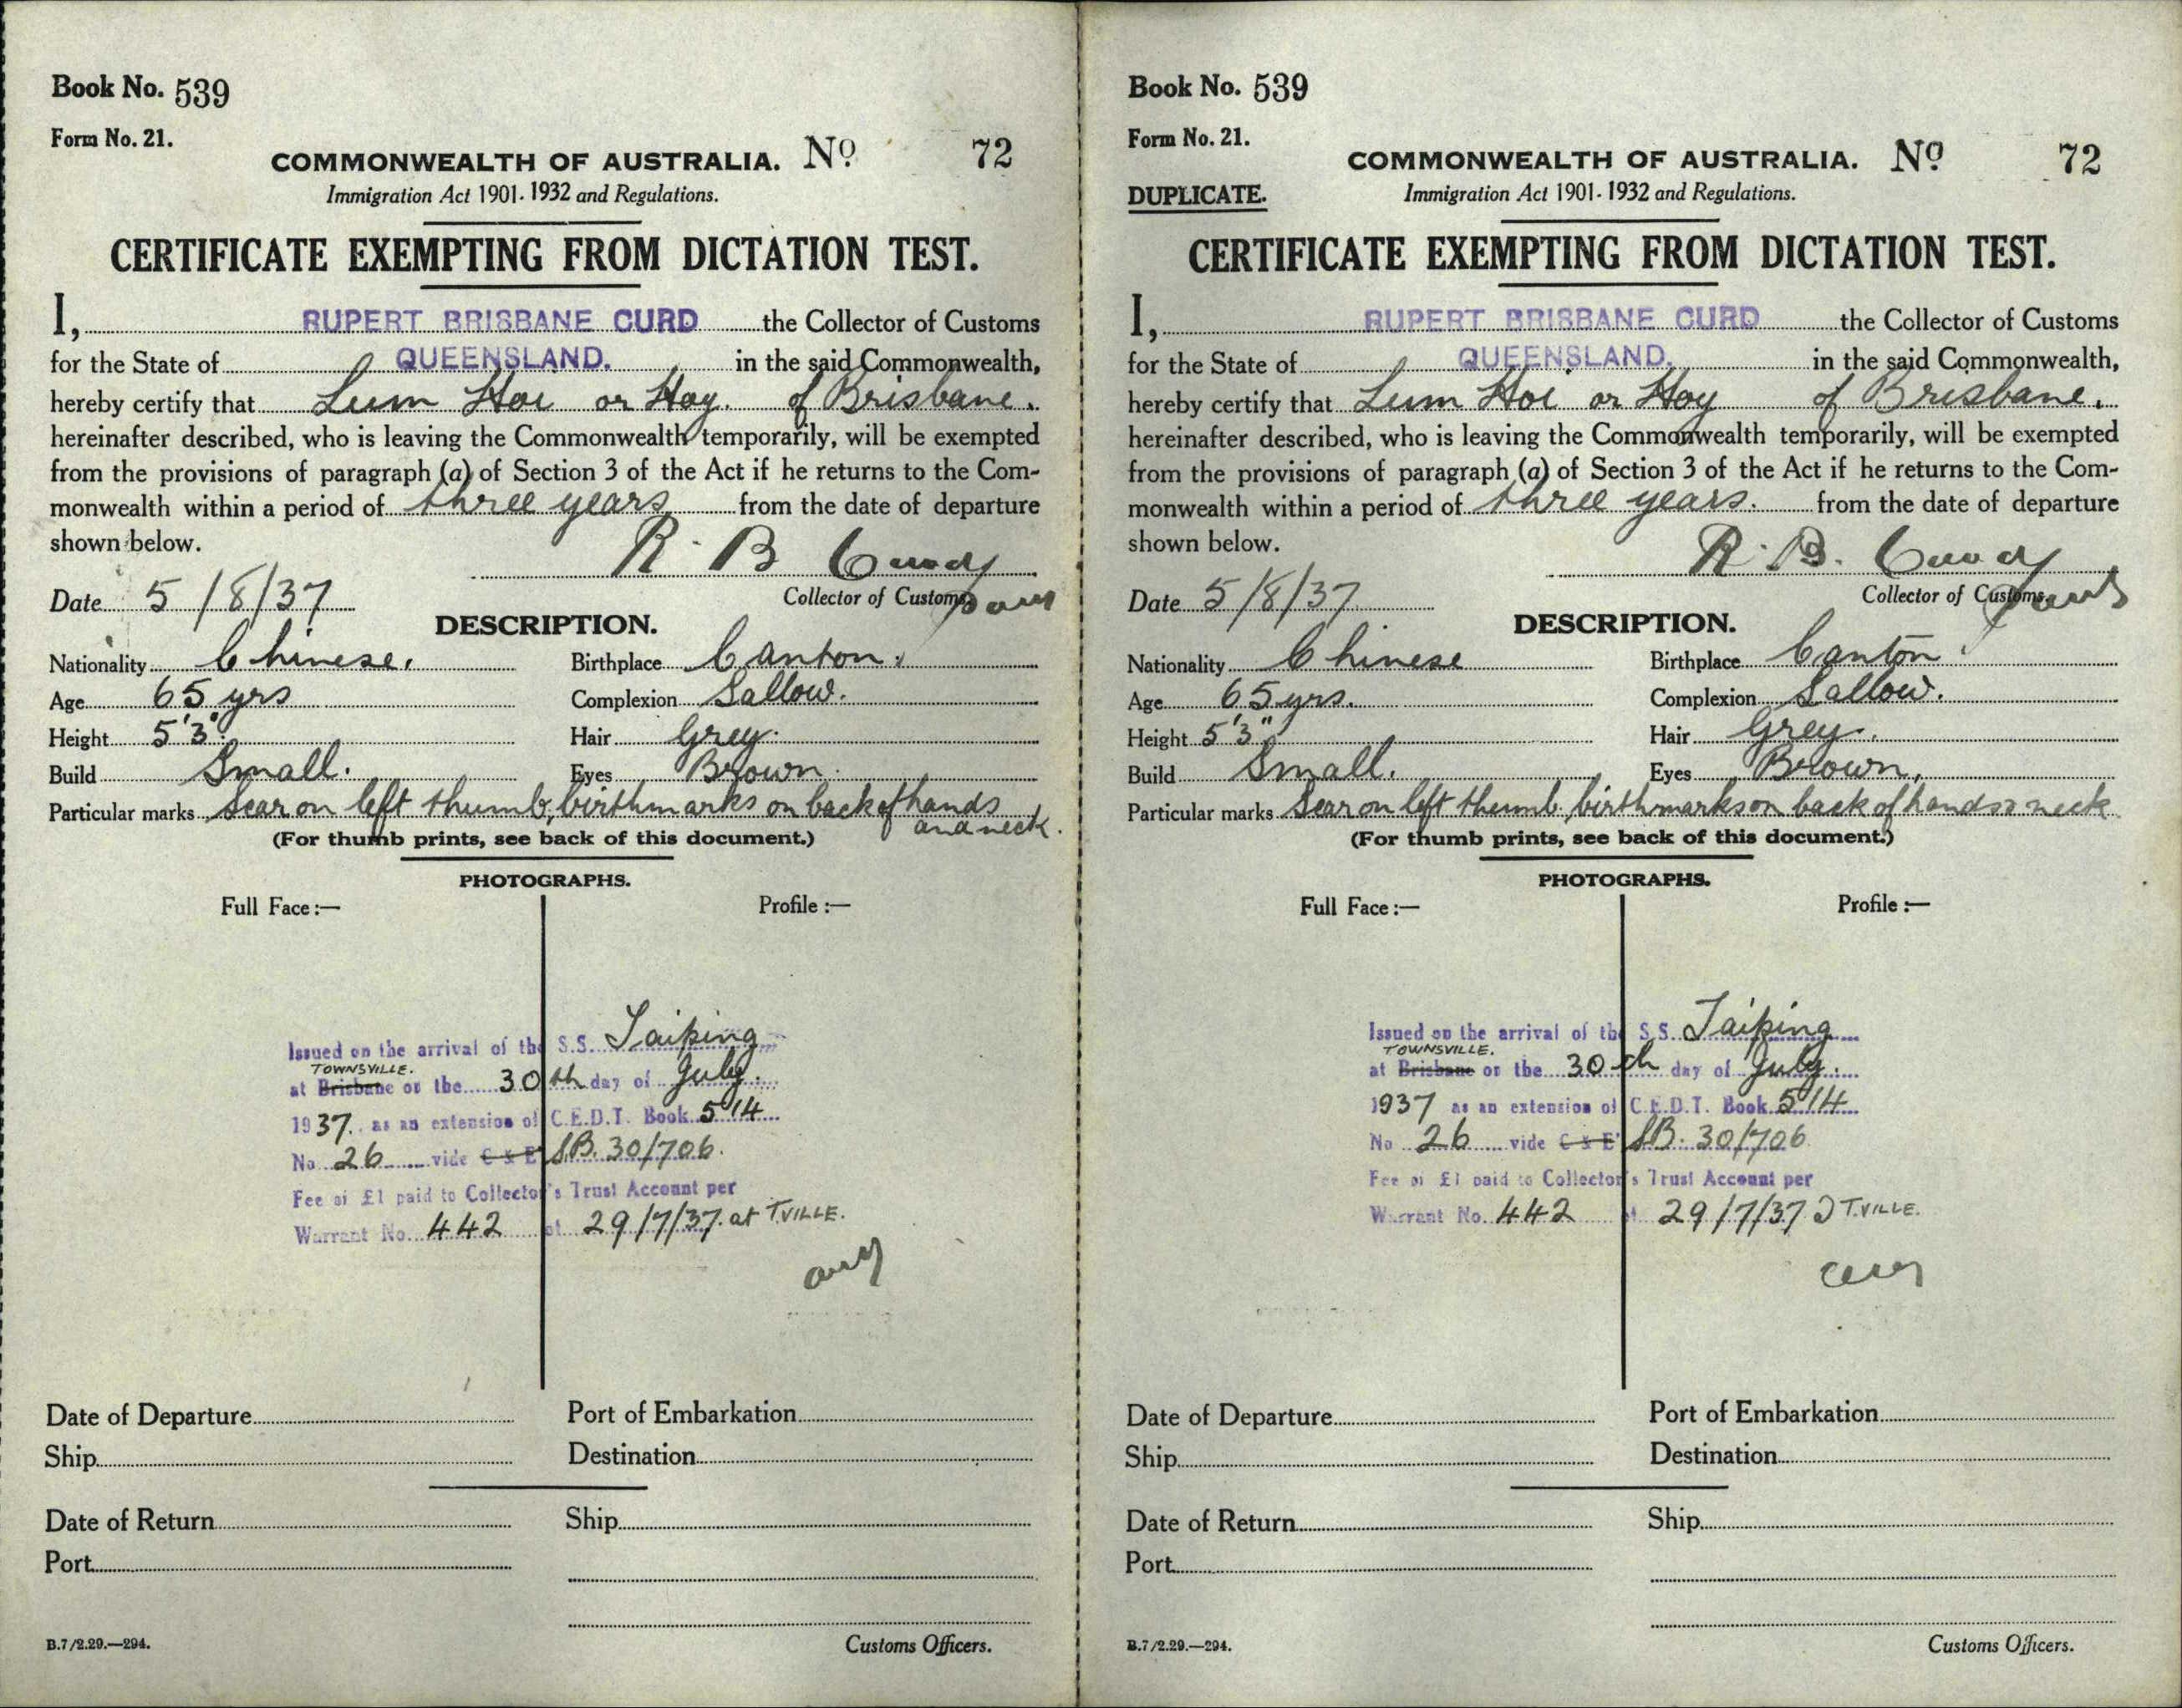 Book No. 539
Form No. 21.
COMMONWEALTH OF AUSTRALIA. No 72
Immigration Act 1901-1932 and Regulations.
CERTIFICATE EXEMPTING FROM DICTATION TEST.
I, RUPERT BRISBANE CURD the Collector of Customs
for the State of QUEENSLAND. in the said Commonwealth,
hereby certify that Lum Hoi or Hoy. of Brisbane.
hereinafter described, who is leaving the Commonwealth temporarily, will be exempted
from the provisions of paragraph (a) of Section 3 of the Act if he returns to the Com-
monwealth within a period of three years from the date of departure
shown below.
R. B Curd
Date 5/8/37 Collector of Customs
DESCRIPTION.
Nationality Chinese. Birthplace Canton.
Age 65 yrs Complexion Sallow.
Height 5'3" Hair Grey.
Build Small. Eyes Brown.
Particular marks Scar on left thumb, birthmarks on back of hands
and neck.
(For thumb prints, see back of this document.)
PHOTOGRAPHS.
Full Face:— Profile:—
Issued on the arrival of the S.S. Taiping
TOWNSVILLE.
at Brisbane on the 30th day of July.
1937. as an extension of C.E.D.T. Book 514
No 26 vide C & E S.B. 30/706.
Fee of £1 paid to Collector's Trust Account per
Warrant No. 442 of 29/7/37. at T.VILLE.
Date of Departure Port of Embarkation
Ship Destination
Date of Return Ship
Port
B.7/2.29.—294. Customs Officers.
Book No. 539
Form No. 21.
COMMONWEALTH OF AUSTRALIA. No 72
DUPLICATE. Immigration Act 1901-1932 and Regulations.
CERTIFICATE EXEMPTING FROM DICTATION TEST.
I, RUPERT BRISBANE CURD the Collector of Customs
for the State of QUEENSLAND. in the said Commonwealth,
hereby certify that Lum Hoi or Hoy of Brisbane.
hereinafter described, who is leaving the Commonwealth temporarily, will be exempted
from the provisions of paragraph (a) of Section 3 of the Act if he returns to the Com-
monwealth within a period of three years. from the date of departure
shown below.
R. B. Curd
Date 5/8/37 Collector of Customs.
DESCRIPTION.
Nationality Chinese Birthplace Canton.
Age 65 yrs. Complexion Sallow.
Height 5'3" Hair Grey.
Build Small. Eyes Brown.
Particular marks Scar on left thumb, birthmarks on back of hands & neck
(For thumb prints, see back of this document.)
PHOTOGRAPHS.
Full Face:— Profile:—
Issued on the arrival of the S.S. Taiping
TOWNSVILLE.
at Brisbane on the 30th day of July.
1937 as an extension of C.E.D.T. Book 514
No 26 vide C & E S.B. 30/706
Fee of £1 paid to Collector's Trust Account per
Warrant No. 442 of 29/7/37 T.VILLE.
Date of Departure Port of Embarkation
Ship Destination
Date of Return Ship
Port
B.7/2.29.—294. Customs Officers.